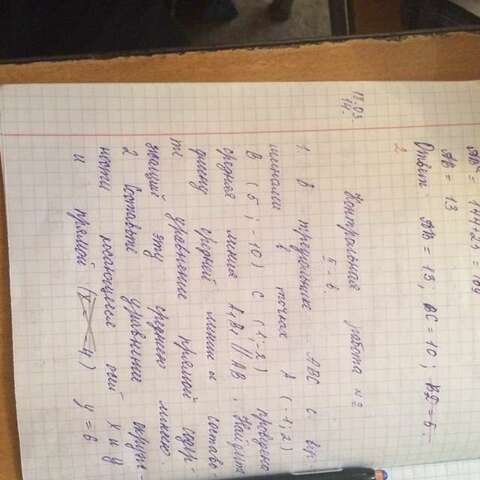 AB² = 144+25 = 169
AB = 13
Ответ: AB = 13; BC = 10; BD = 5
2
18.03.14.
Контрольная работа №2
II - в.
1. В треугольнике ABC с вер-
шинами в точках A (-1; 2)
B (5; -10) C (1; -2) проведена
средняя линия A₁B₁ || AB. Найдите
длину средней линии и составь-
те уравнение прямой содер-
жащий эту среднюю линию.
2 Составьте уравнение окруж-
ности касающегося осей x и y
и прямой (x = -4,) y = 6